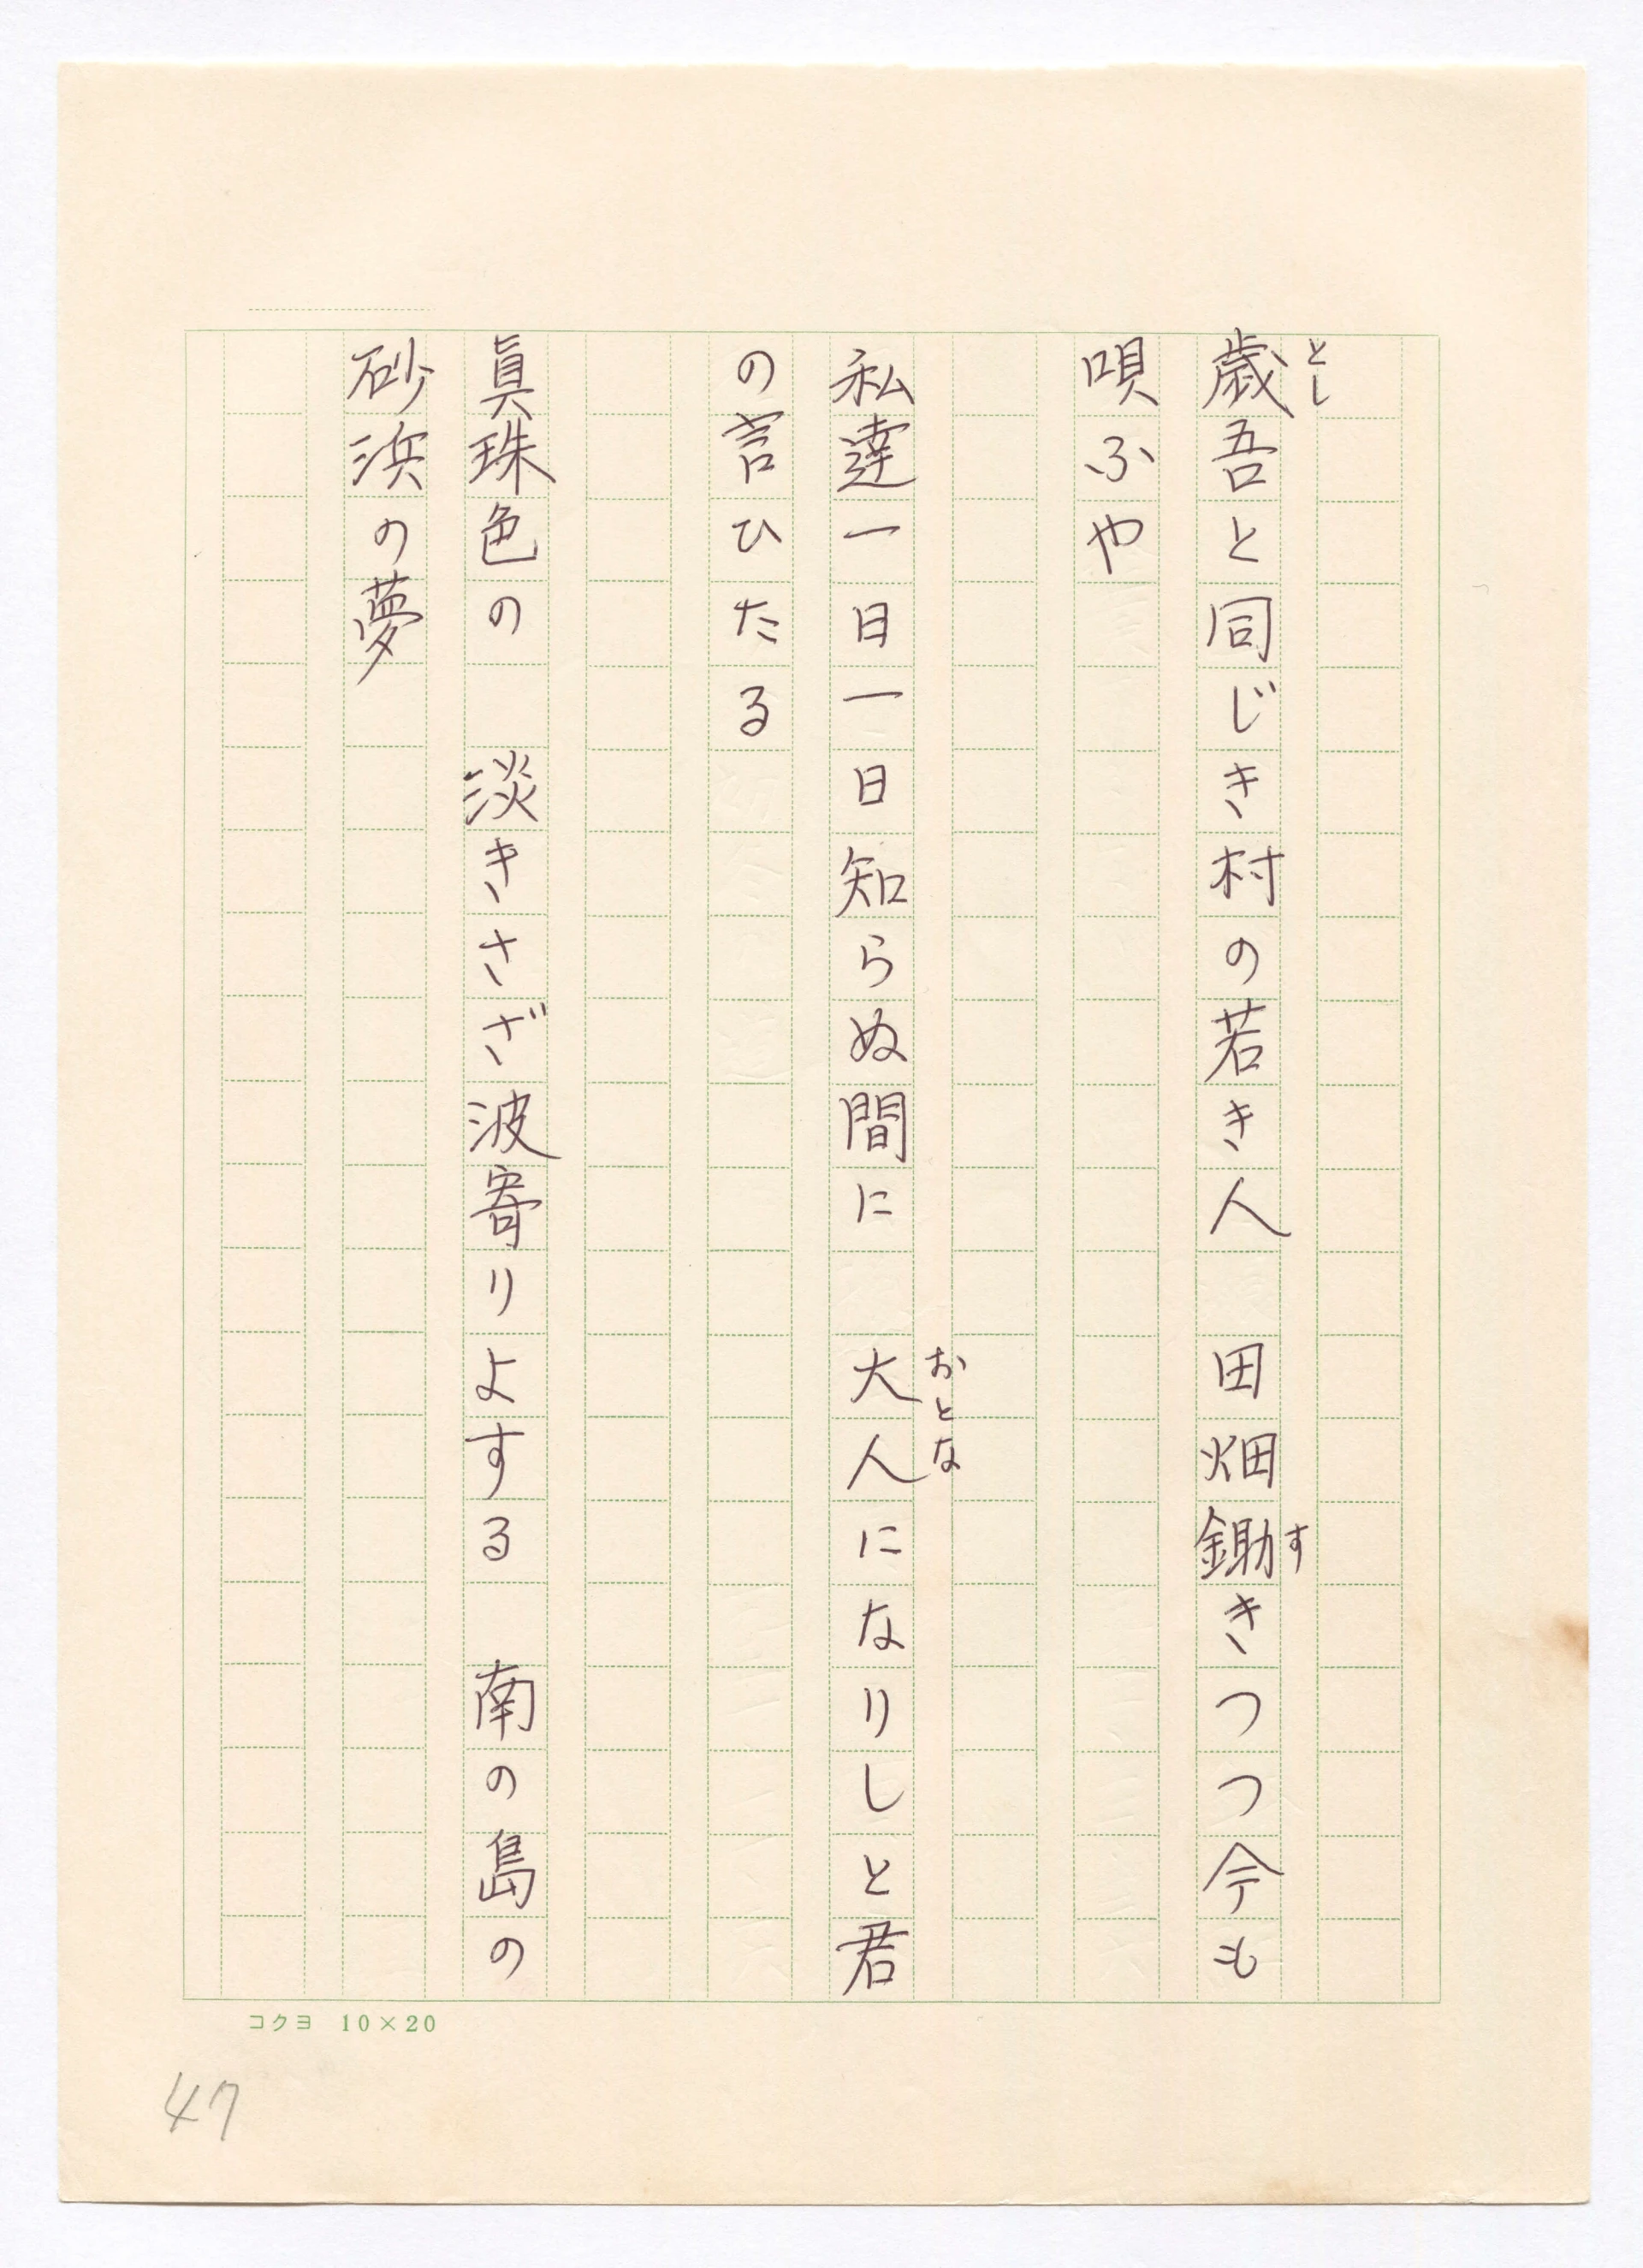 とし
歳吾と同じき村の若き人　田畑鋤きつつ今も
す
唄ふや
私達一日一日知らぬ間に　大人になりしと君
おとな
の言ひたる
眞珠色の　淡きさざ波寄りよする　南の島の
砂浜の夢
コクヨ 10×20
47